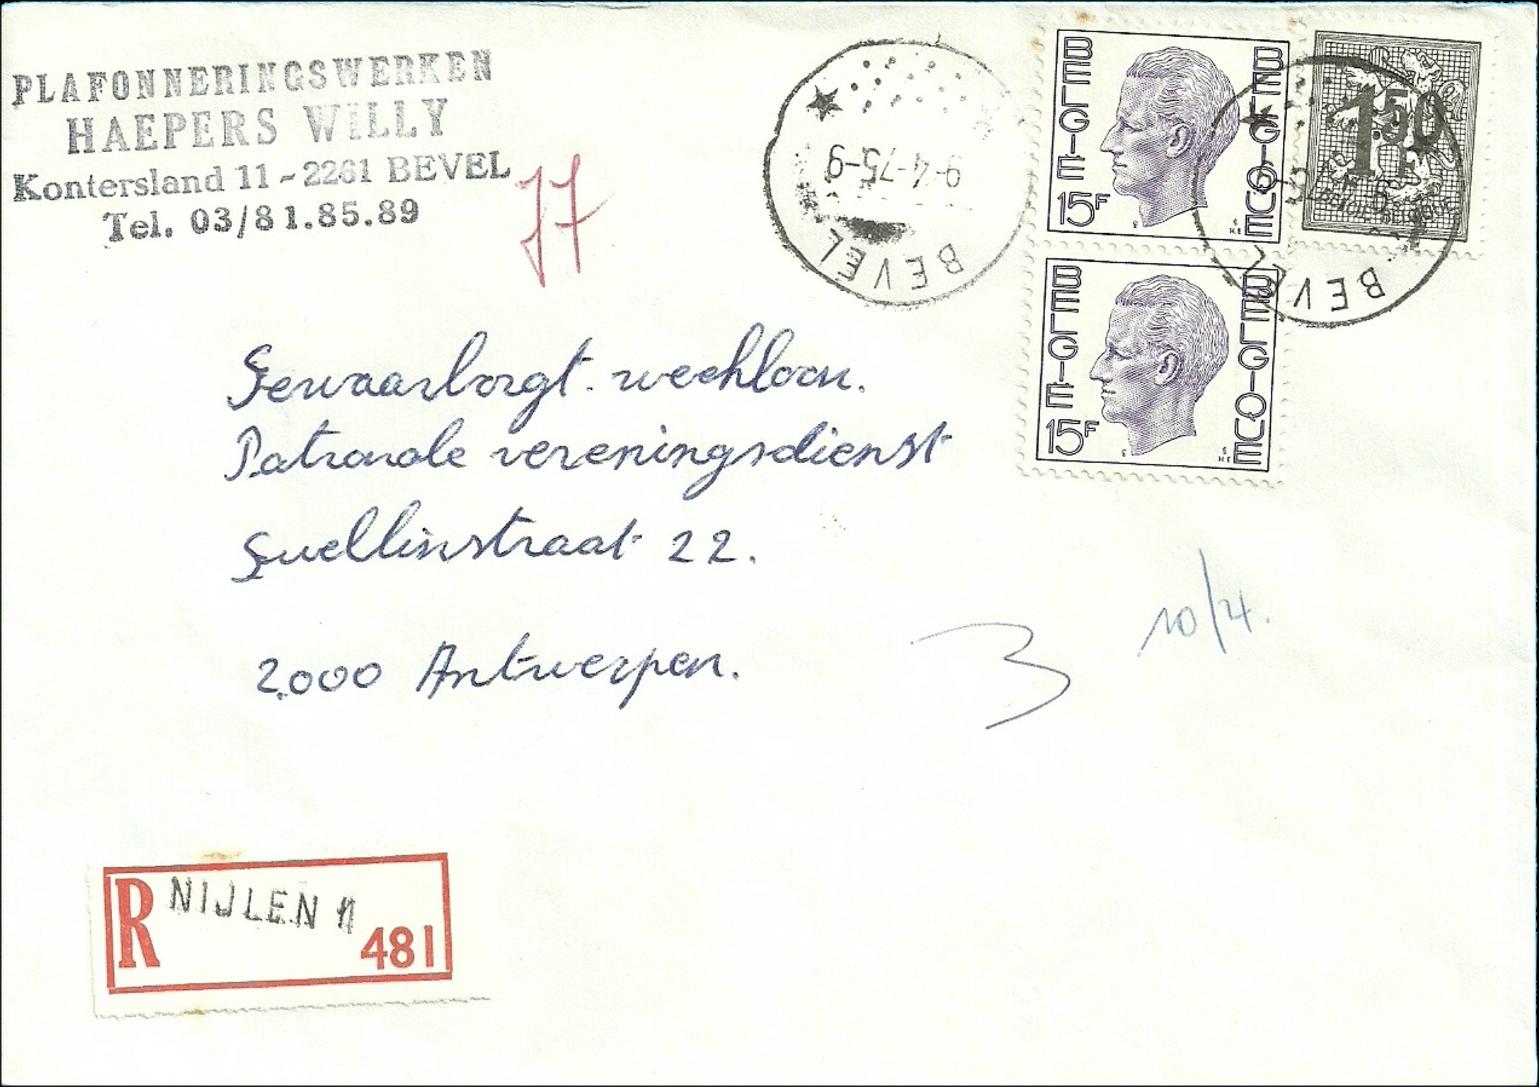 PLAFONNERINGSWERKEN
HAEPERS WILLY
Kontersland 11 - 2261 BEVEL
Tel. 03/81.85.89
9-4-75-9
BEVEL
BELGIE
BELGIQUE
15F
1.50
F
BEVEL
BELGIE
BELGIQUE
15F
Gewaarborgt weekloon.
Patronale vereningsdienst
Quellinstraat 22.
2000 Antwerpen.
10/4.
R NIJLEN 1
481